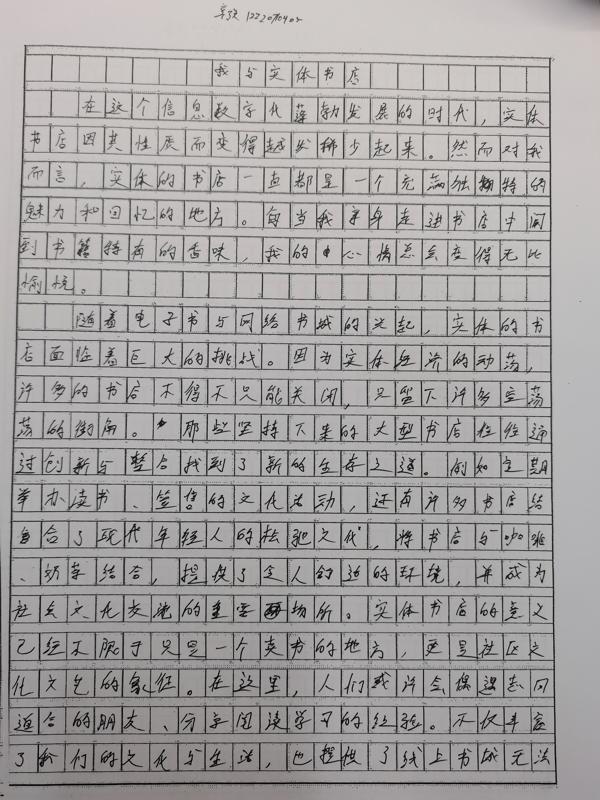 我与实体书店
在这个信息数字化蓬勃发展的时代，实体
书店因其性质而变得越发稀少起来。然而对我
而言，实体的书店一直都是一个充满独特的
魅力和回忆的地方。每当我亲身走进书店中闻
到书籍特有的香味，我的心情总会变得无比
愉悦。
随着电子书与网络书城的兴起，实体的书
店面临着巨大的挑战。因为实体经济的动荡，
许多的书店不得不只能关闭，只留下许多空荡
荡的街角。那些坚持下来的大型书店往往通
过创新与整合找到了新的生存之道。例如定期
举办读书、签售的文化活动，还有许多书店结
合了现代年轻人的松弛文化，将书店与咖啡
、奶茶结合，提供了令人舒适的环境，并成为
社会文化交流的重要场所。实体书店的意义
已经不限于只是一个卖书的地方，更是社区文
化文艺的象征。在这里，人们或许会偶遇志同
道合的朋友、分享阅读学习的经验。不仅丰富
了我们的文化与生活，也提供了线上书城无法